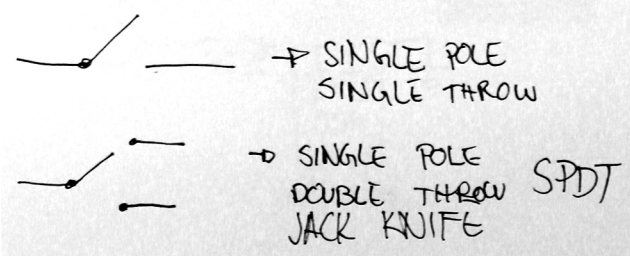 SINGLE POLE
SINGLE THROW
SINGLE POLE
DOUBLE THROW SPDT
JACK KNIFE